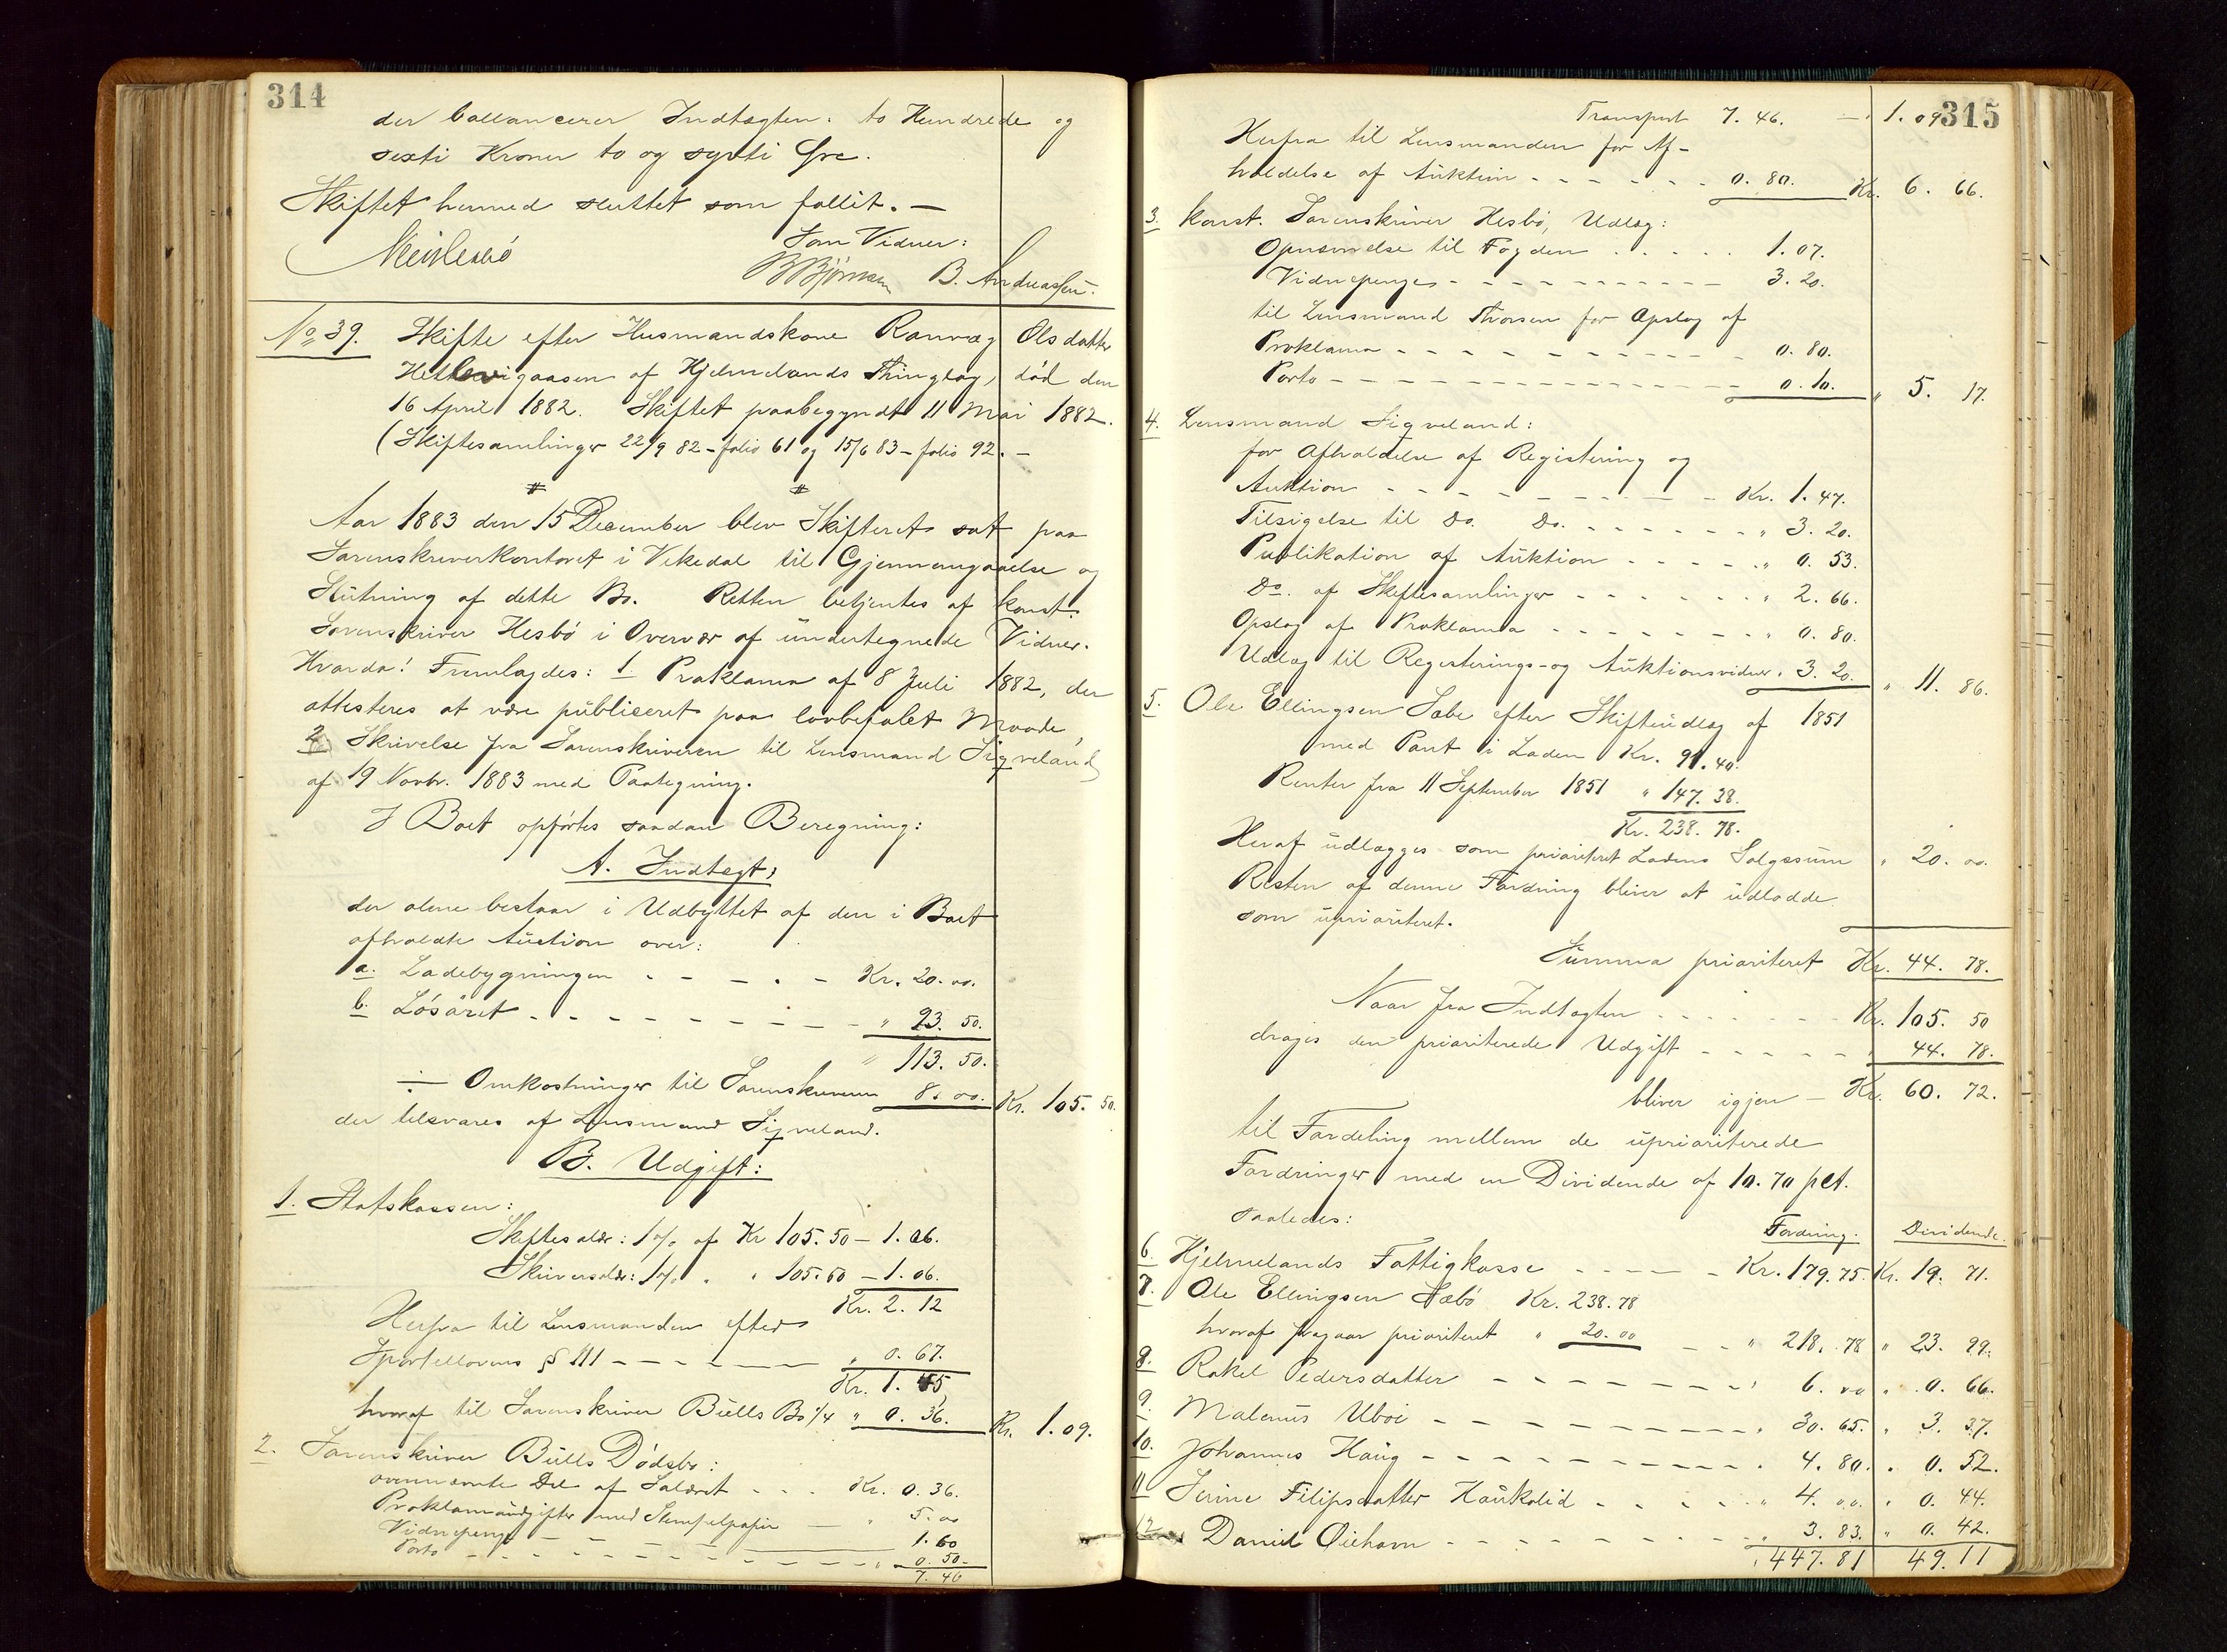 314
der ballancerer Indtægten: to Hundrede og
sexti Kroner to og syvti Øre.
Skiftet hermed sluttet som fallit. —
Som Vidner:
BBjørnsen B. Andreassen.
No 39. Skifte efter Husmandskone Ranvæg Olsdatter
Hellevigaasen af Hjelmelands Thinglag, død den
16 April 1882. Skiftet paabegyndt 11 Mai 1882.
(Skiftesamlinger 22/9 82 – folio 61 og 15/6 83 – folio 92. —
Aar 1883 den 15 December blev Skifteret sat paa
Sorenskriverkontoret i Vikedal til Gjennemgaaelse og
Slutning af dette Bo. Retten betjentes af konst.
Sorenskriver Hesbø i Overvær af undertegnede Vidner.
Hvorda! Fremlagdes: 1 Proklama af 8 Juli 1882, der
attesteres at være publiceret paa lovbefalet Maade,
2 Skrivelse fra Sorenskriveren til Lensmand Sigveland
af 19 Novbr. 1883 med Paategning.
I Boet opførtes saadan Beregning:
A. Indtægt,
der alene bestaar i Udbyttet af den i Boet
afholdte Auction over:
a. Ladebygningen - - - - - Kr. 20.00.
b. Løsøret - - - - - - - - - " 93.50.
" 113.50.
÷ Omkostninger til Sorenskriveren 8.00. Kr. 105.50.
der tilsvares af Lensmand Sigveland.
B. Udgift:
1. Statskassen:
Skiftesalær: 1% af Kr 105.50 – 1.06.
Skriversalær: 1% " " 105.50 – 1.06.
Kr. 2.12
Herfra til Lensmanden efter
Sportellovens § 111 - - - - - " 0.67.
Kr. 1.45
hvoraf til Sorenskriver Bulls Bo 1/4 " 0.36. Kr. 1.09.
2. Sorenskriver Bulls Dødsbo:
ovennævnte Del af Salæret - - - Kr. 0.36.
Proklamaudgifter med Stempelpapir — " 5.00
Vidnepenge - - - 1.60
Porto - - - - - - - - - " 0.50
7.46
315
Transport 7.46. — 1.09
Herfra til Lensmanden for Af-
holdelse af Auktion - - - - - - 0.80. Kr. 6.66.
3. konst. Sorenskriver Hesbø, Udlæg:
Opnævnelse til Fogden . . . . . 1.07.
Vidnepenge - - - - - - - - - - 3.20.
til Lensmand Thorsen for Opslag af
Proklama - - - - - - - - - - 0.80.
Porto - - - - - - - - - - - - 0.10. " 5.17.
4. Lensmand Sigveland:
for Afholdelse af Registering og
Auktion - - - - - - - - - - Kr. 1.47.
Tilsigelse til do. do. - - - - - - " 3.20.
Publikation af Auktion - - - - - " 0.53.
Do. af Skiftesamlinger - - - - - - " 2.66.
Opslag af Proklama - - - - - - - " 0.80.
Udlæg til Registerings- og Auktionsvidner " 3.20. " 11.86.
5. Ole Ellingsen Sæbø efter Skifteudlæg af 1851
med Pant i Laden Kr. 91.40.
Renter fra 11 September 1851 " 147.38.
Kr. 238.78.
Heraf udlægges som prioriteret Ladens Salgssum " 20.00.
Resten af denne Fordring bliver at udlodde
som uprioriteret.
Summa prioriteret Kr. 44.78.
Naar fra Indtægten . . . . . . . Kr. 105.50
drages den prioriterede Udgift - - - - - " 44.78.
bliver igjen — Kr. 60.72.
til Fordeling mellem de uprioriterede
Fordringer med en Dividende af 10.70 pct.
saaledes:
Fordring. Dividende.
6. Hjelmelands Fattigkasse - - - - - Kr. 179.75. Kr. 19.71.
7. Ole Ellingsen Sæbø Kr. 238.78
hvoraf fragaar prioriteret " 20.00 - - " 218.78 " 23.99.
8. Rakel Pedersdatter - - - - - - - " 6.00 " 0.66.
9. Malenus Uboi - - - - - - - - - " 30.65. " 3.37.
10. Johannes Haug - - - - - - - - - " 4.80. " 0.52.
11 Serine Filipsdatter Haukelid - - - - - " 4.00. " 0.44.
12 Daniel Øiehavn - - - - - - - - " 3.83. " 0.42.
" 447.81 49.11